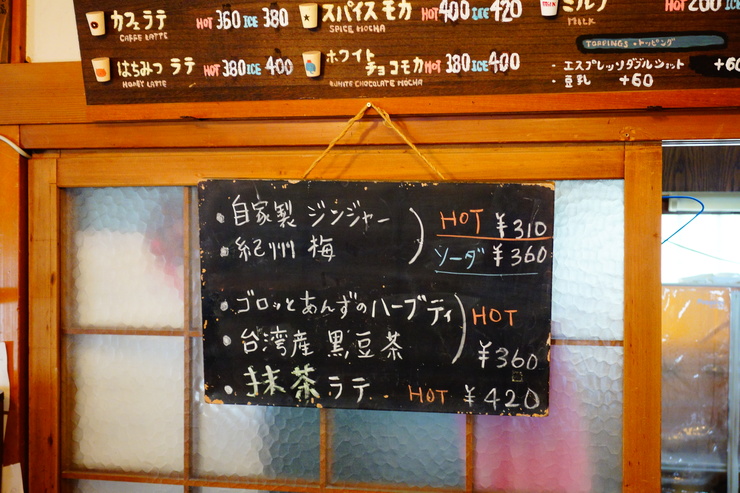 カフェラテ HOT 360 ICE 380
CAFFE LATTE
スパイスモカ HOT 400 ICE 420
SPICE MOCHA
ミルク HOT 200
MILK
はちみつ ラテ HOT 380 ICE 400
HONEY LATTE
ホワイト
チョコモカ HOT 380 ICE 400
WHITE CHOCOLATE MOCHA
TOPPINGS・トッピング
・エスプレッソダブルショット +60
・豆乳 +60
・自家製 ジンジャー HOT ¥310
・紀州 梅 ソーダ ¥360
・ゴロッとあんずのハーブティ HOT
・台湾産 黒豆茶 ¥360
・抹茶ラテ HOT ¥420